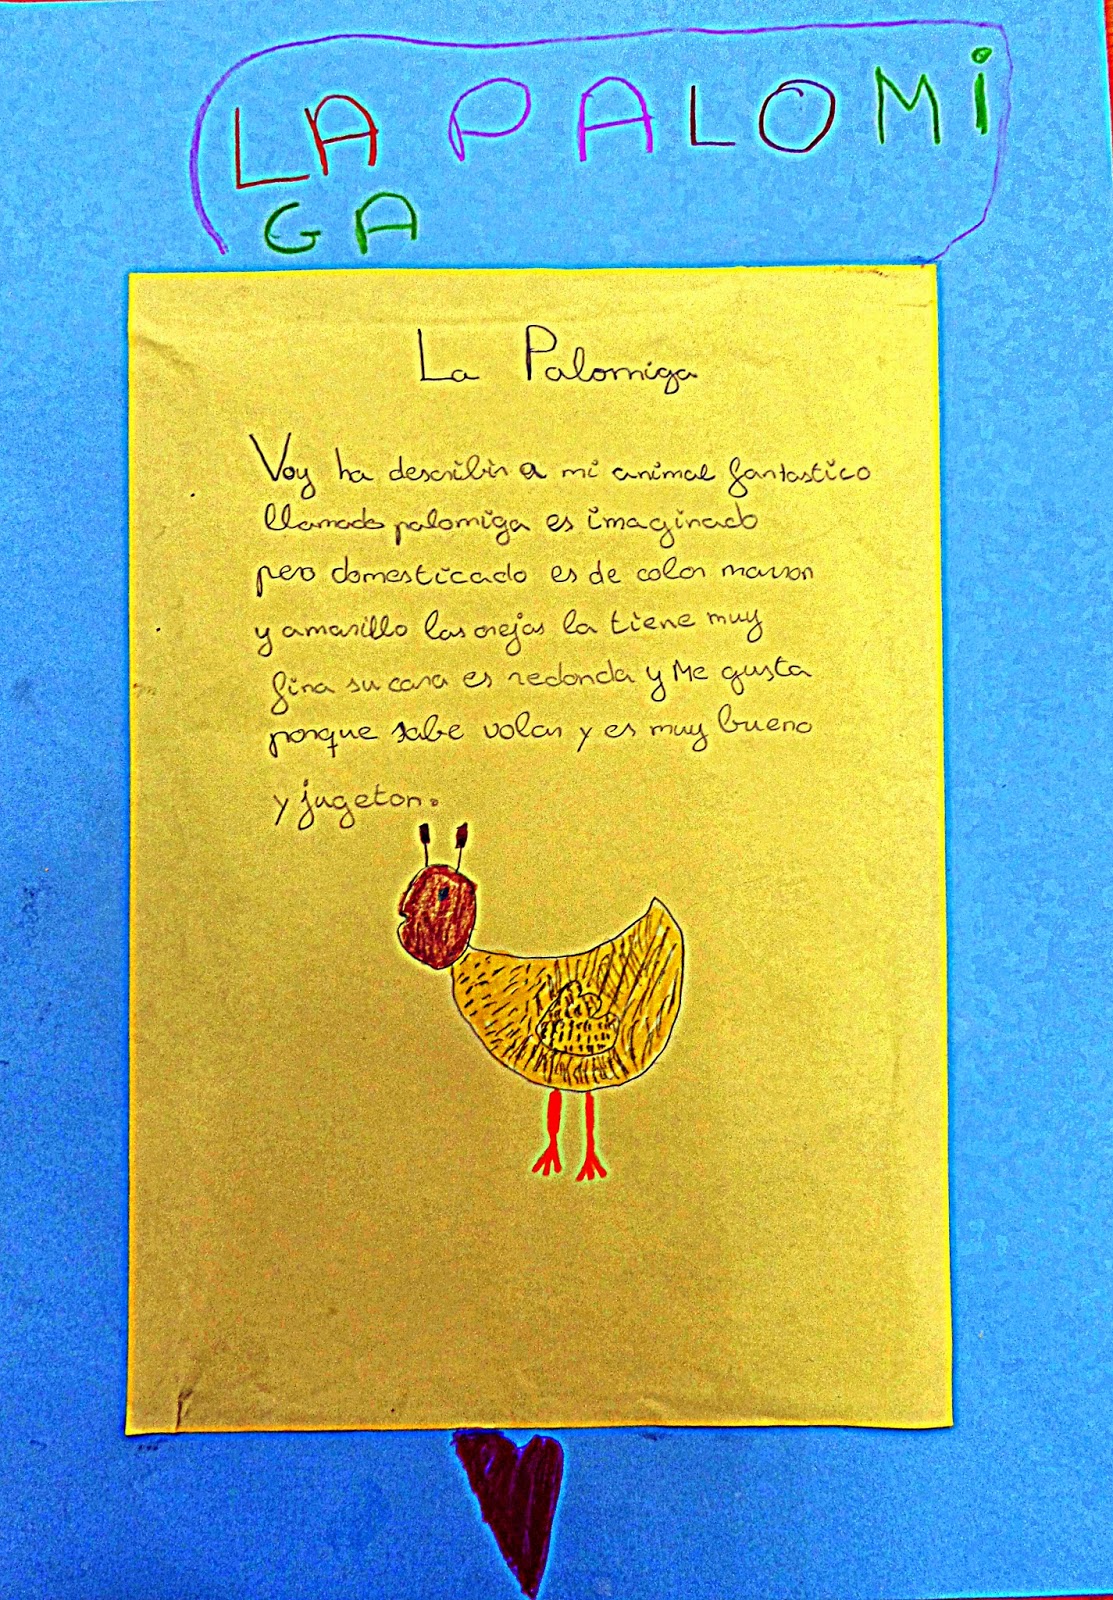 LA PALOMI
GA
La Palomiga
Voy ha describir a mi animal fantastico
llamado palomiga es imaginado
pero domesticado es de color marron
y amarillo las orejas la tiene muy
fina su cara es redonda y Me gusta
porque sabe volar y es muy bueno
y jugeton.